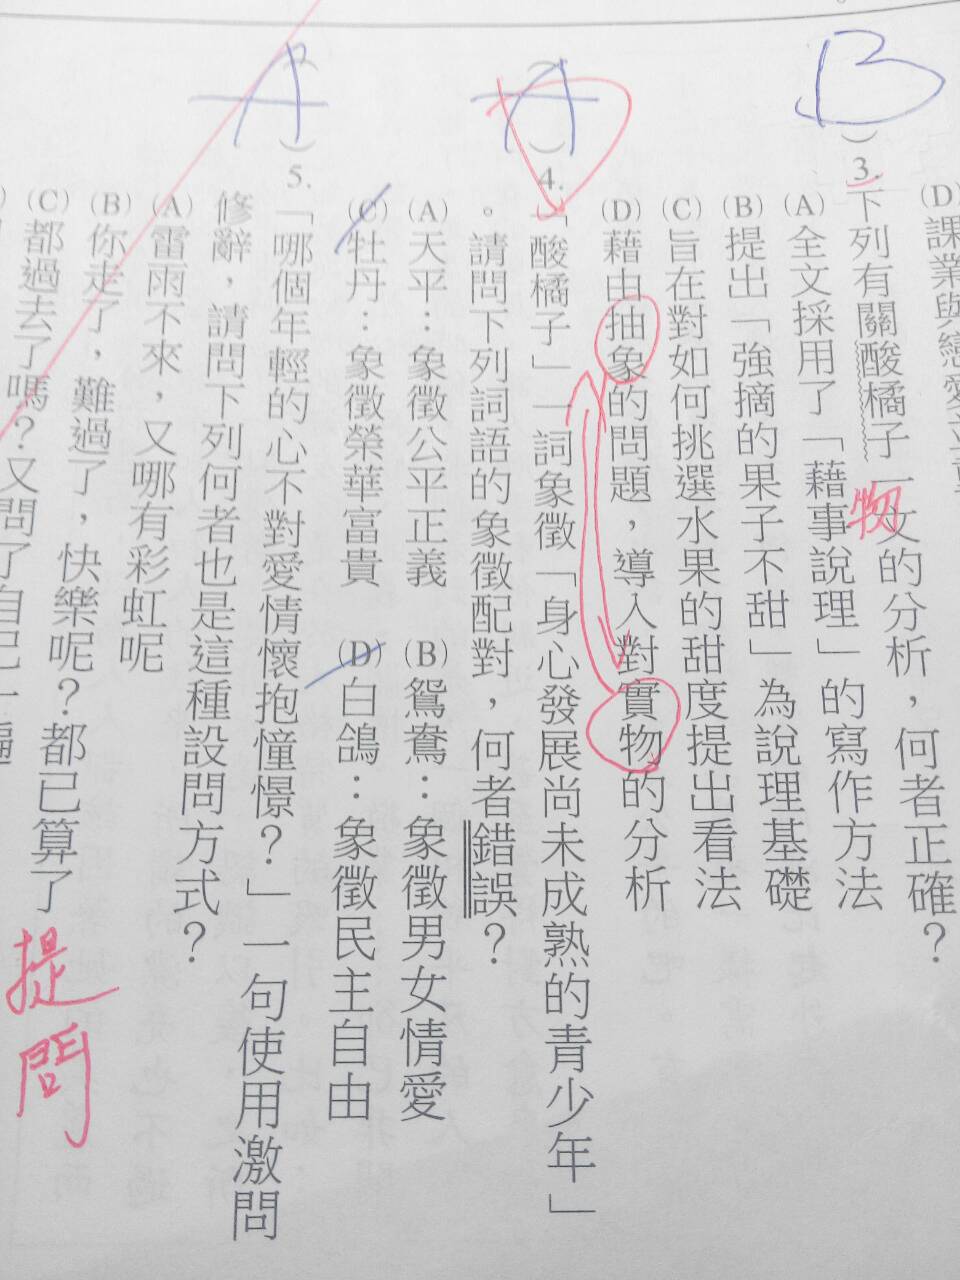 (D)課業與戀愛
B
)3.下列有關酸橘子一文的分析，何者正確？
(A)全文採用了「藉事說理」的寫作方法
物
(B)提出「強摘的果子不甜」為說理基礎
(C)旨在對如何挑選水果的甜度提出看法
(D)藉由抽象的問題，導入對實物的分析
A
( )4.「酸橘子」一詞象徵「身心發展尚未成熟的青少年」
。請問下列詞語的象徵配對，何者錯誤？
(A)天平：象徵公平正義 (B)鴛鴦：象徵男女情愛
(C)牡丹：象徵榮華富貴 (D)白鴿：象徵民主自由
A
( )5.「哪個年輕的心不對愛情懷抱憧憬？」一句使用激問
修辭，請問下列何者也是這種設問方式？
(A)雷雨不來，又哪有彩虹呢
(B)你走了，難過了，快樂呢？都已算了
(C)都過去了嗎？又問了自己一遍
提問